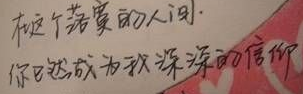 在这个落寞的人间.
你已然成为我深深的信仰